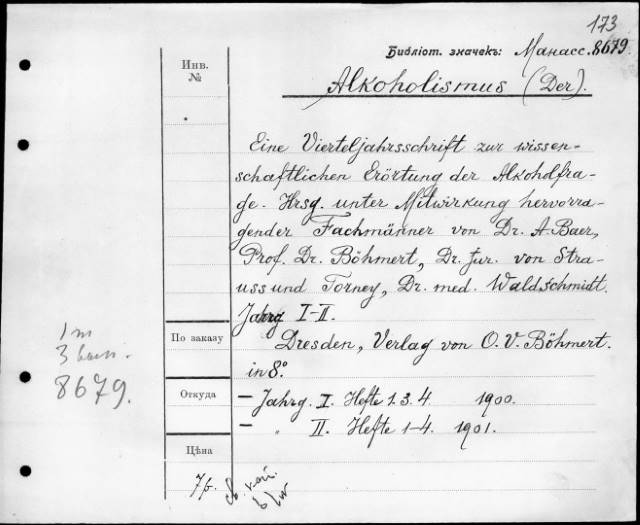 173
Библіот. значекъ: Манасс. 8679
Alkoholismus (Der).
Инв.
№
Eine Vierteljahrsschrift zur wissen-
schaftlichen Erörtung der Alkoholfra-
ge. Hrsg. unter Mitwirkung hervorra-
gender Fachmänner von Dr. A. Baer,
Prof. Dr. Böhmert, Dr. Jur. von Stra-
uss und Torney, Dr. med. Waldschmidt.
Jahrg I-II.
По заказу
Dresden, Verlag von O. V. Böhmert.
in 8°
Откуда
— Jahrg. I. Hefte 1. 3. 4 1900.
— " II. Hefte 1-4. 1901.
Цѣна
7 р.
1 т
3 вып.
8679.